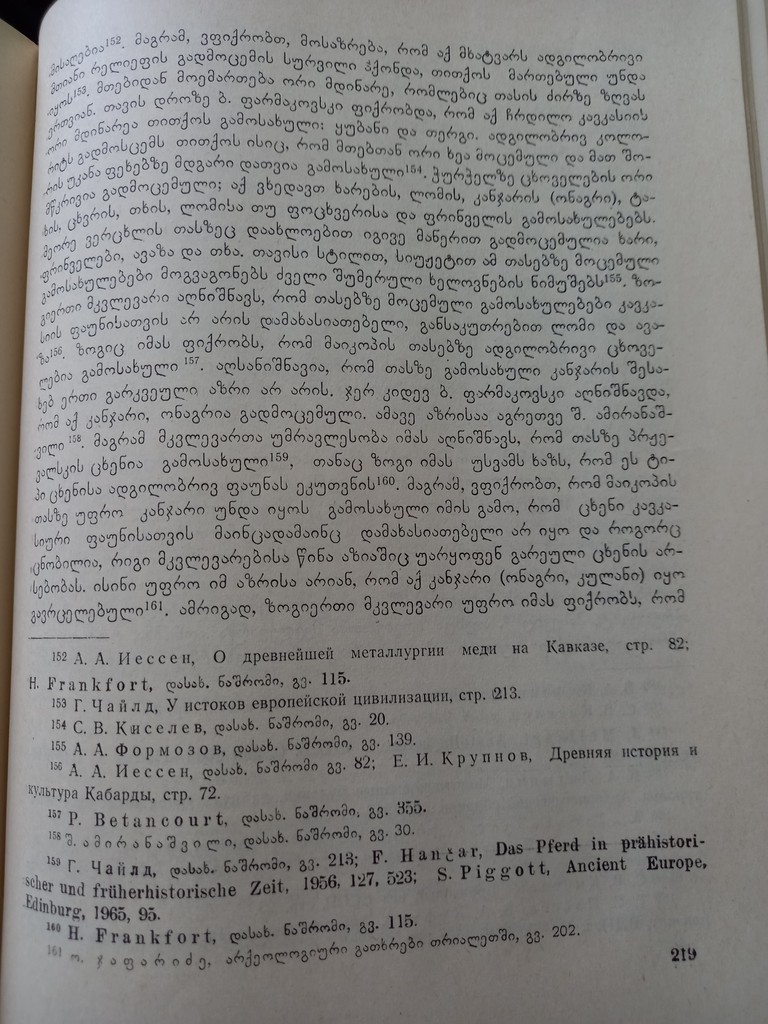 მისაღებია152. მაგრამ, ვფიქრობთ, მოსაზრება, რომ აქ მხატვარს ადგილობრივი
მთიანი რელიეფის გადმოცემის სურვილი ჰქონდა, თითქოს მართებული უნდა
იყოს153. მთებიდან მოემართება ორი მდინარე, რომლებიც თასის ძირზე ზღვას
ერთვიან. თავის დროზე ბ. ფარმაკოვსკი ფიქრობდა, რომ აქ ჩრდილო კავკასიის
ორი მდინარეა თითქოს გამოსახული: ყუბანი და თერგი. ადგილობრივ კოლო-
რიტს გადმოსცემს თითქოს ისიც, რომ მთებთან ორი ხეა მოცემული და მათ შო-
რის უკანა ფეხებზე მდგარი დათვია გამოსახული154. ჭურჭელზე ცხოველების ორი
მწკრივია გადმოცემული; აქ ვხედავთ ხარების, ლომის, კანჯარის (ონაგრი), ტა-
ხის, ცხვრის, თხის, ლომისა თუ ფოცხვერისა და ფრინველის გამოსახულებებს.
მეორე ვერცხლის თასზეც დაახლოებით იგივე მანერით გადმოცემულია ხარი,
ფრინველები, ავაზა და თხა. თავისი სტილით, სიუჟეტით ამ თასებზე მოცემული
გამოსახულებები მოგვაგონებს ძველი შუმერული ხელოვნების ნიმუშებს155. ზო-
გიერთი მკვლევარი აღნიშნავს, რომ თასებზე მოცემული გამოსახულებები კავკა-
სიის ფაუნისათვის არ არის დამახასიათებელი, განსაკუთრებით ლომი და ავა-
ზა156. ზოგიც იმას ფიქრობს, რომ მაიკოპის თასებზე ადგილობრივი ცხოვე-
ლებია გამოსახული 157. აღსანიშნავია, რომ თასზე გამოსახული კანჯარის შესა-
ხებ ერთი გარკვეული აზრი არ არის. ჯერ კიდევ ბ. ფარმაკოვსკი აღნიშნავდა,
რომ აქ კანჯარი, ონაგრია გადმოცემული. ამავე აზრისაა აგრეთვე შ. ამირანაშ-
ვილი 158. მაგრამ მკვლევართა უმრავლესობა იმას აღნიშნავს, რომ თასზე პრჟე-
ვალსკის ცხენია გამოსახული159, თანაც ზოგი იმას უსვამს ხაზს, რომ ეს ტი-
პი ცხენისა ადგილობრივ ფაუნას ეკუთვნის160. მაგრამ, ვფიქრობთ, რომ მაიკოპის
თასზე უფრო კანჯარი უნდა იყოს გამოსახული იმის გამო, რომ ცხენი კავკა-
სიური ფაუნისათვის მაინცადამაინც დამახასიათებელი არ იყო და როგორც
ცნობილია, რიგი მკვლევარებისა წინა აზიაშიც უარყოფენ გარეული ცხენის არ-
სებობას. ისინი უფრო იმ აზრისა არიან, რომ აქ კანჯარი (ონაგრი, კულანი) იყო
გავრცელებული161. ამრიგად, ზოგიერთი მკვლევარი უფრო იმას ფიქრობს, რომ
152 А. А. Иессен, О древнейшей металлургии меди на Кавказе, стр. 82;
H. Frankfort, დასახ. ნაშრომი, გვ. 115.
153 Г. Чайлд, У истоков европейской цивилизации, стр. 213.
154 С. В. Киселев, დასახ. ნაშრომი, გვ. 20.
155 А. А. Формозов, დასახ. ნაშრომი, გვ. 139.
156 А. А. Иессен, დასახ. ნაშრომი გვ. 82; Е. И. Крупнов, Древняя история и
культура Кабарды, стр. 72.
157 P. Betancourt, დასახ. ნაშრომი, გვ. 355.
158 შ. ამირანაშვილი, დასახ. ნაშრომი, გვ. 30.
159 Г. Чайлд, დასახ. ნაშრომი, გვ. 213; F. Hančar, Das Pferd in prähistori-
scher und früherhistorische Zeit, 1956, 127, 523; S. Piggott, Ancient Europe,
Edinburg, 1965, 95.
160 H. Frankfort, დასახ. ნაშრომი, გვ. 115.
161 ო. ჯაფარიძე, არქეოლოგიური გათხრები თრიალეთში, გვ. 202.
219